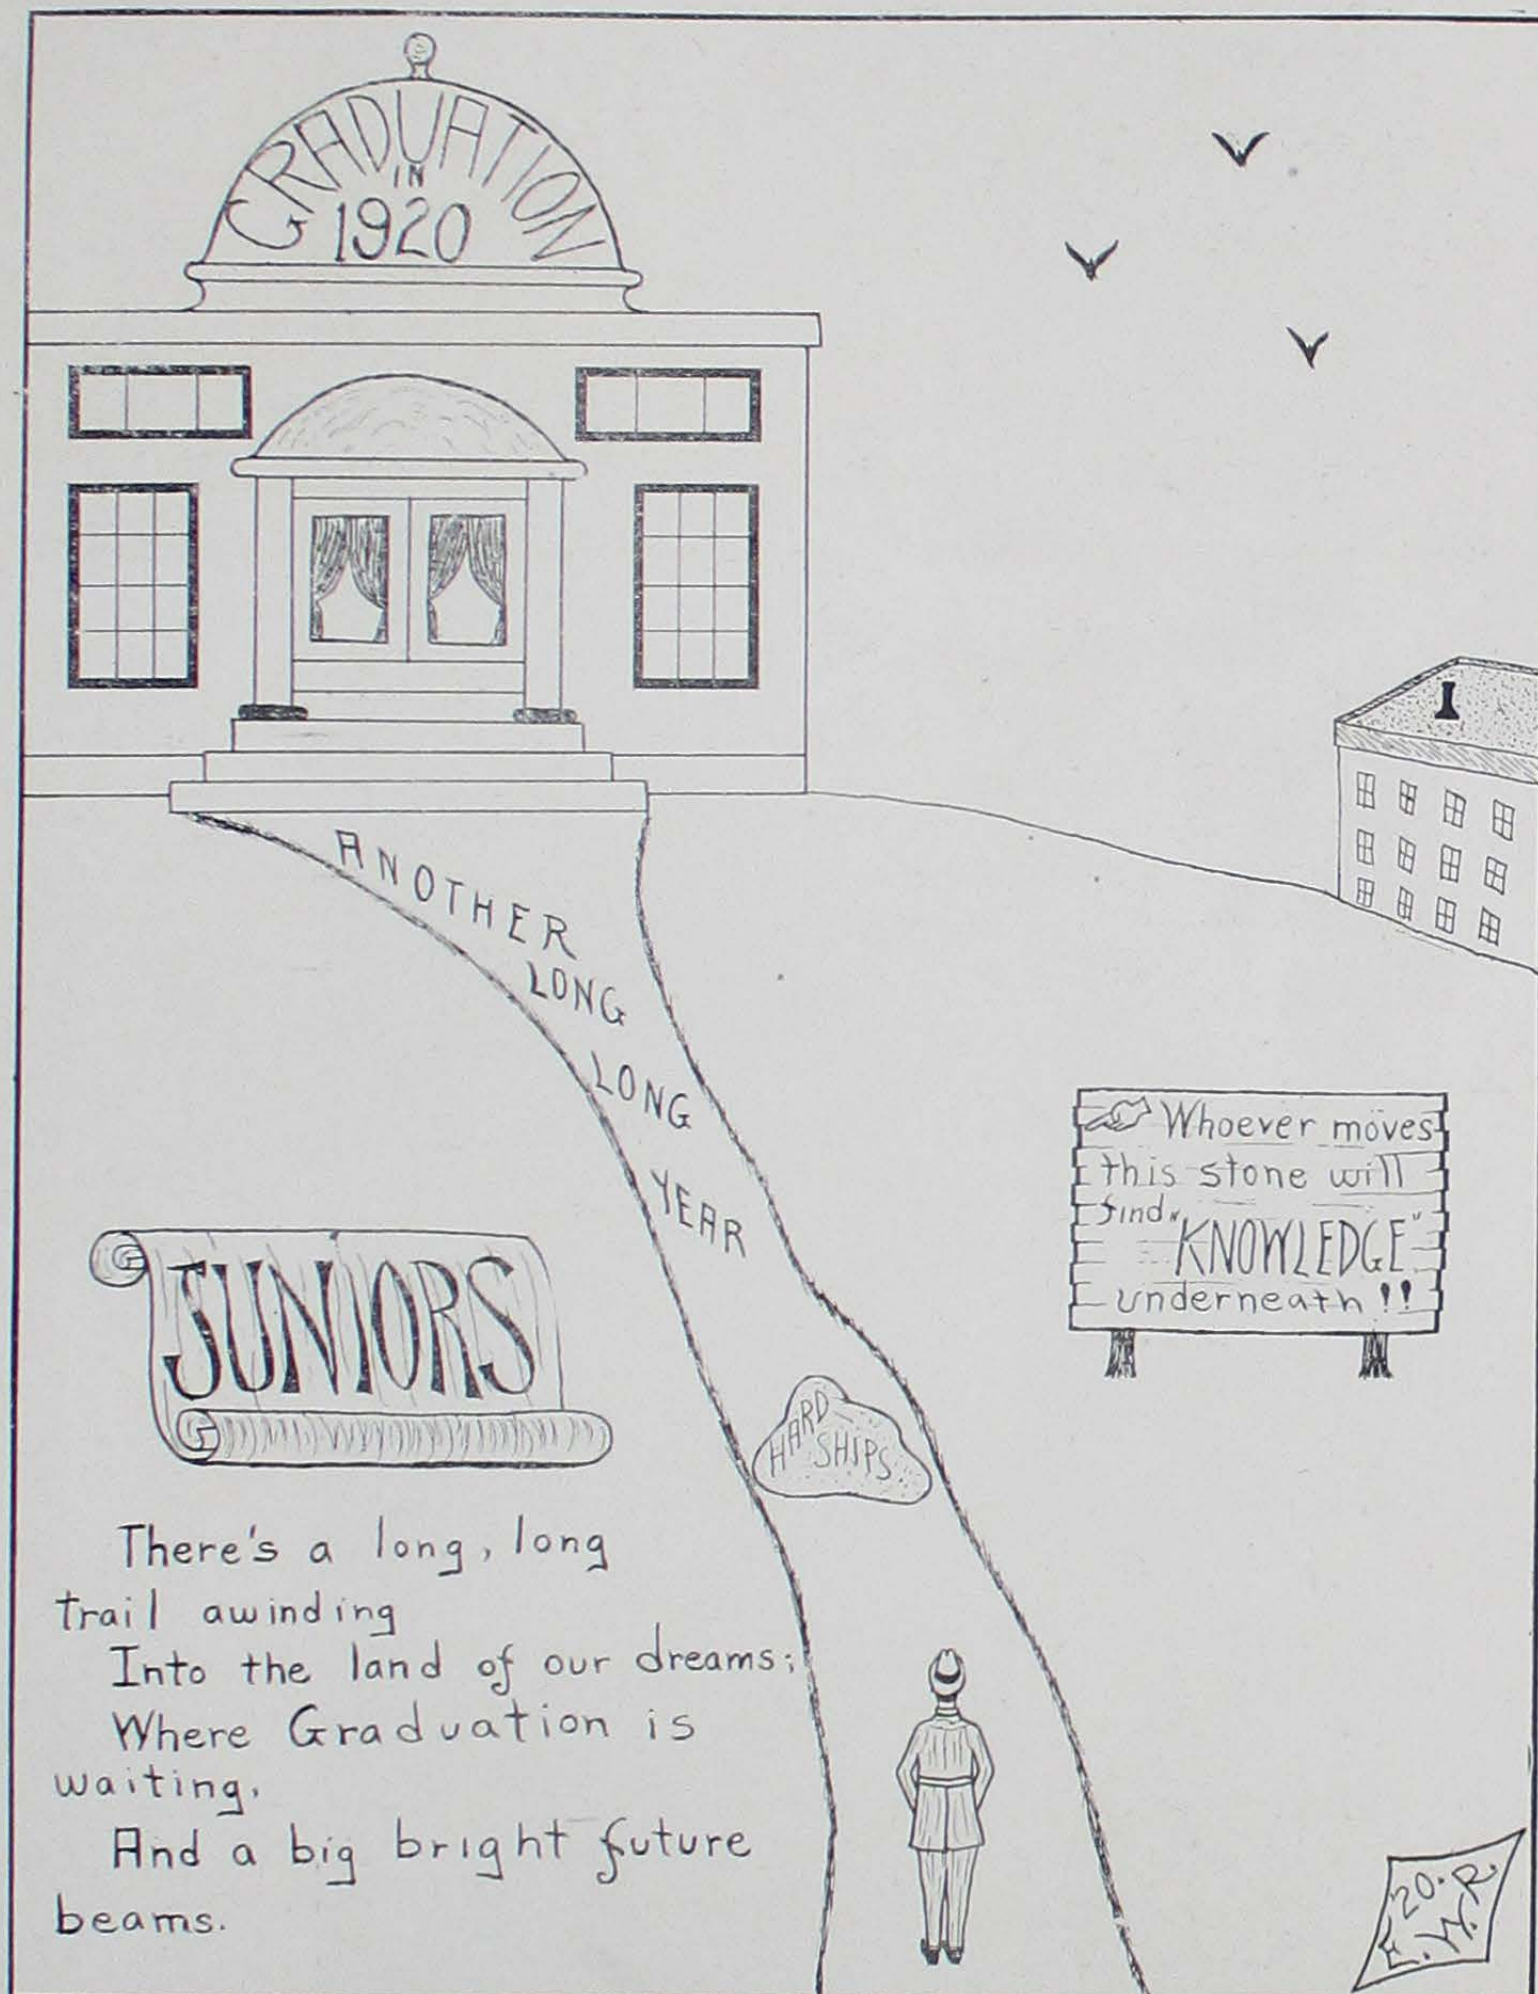 GRADUATION
IN
1920
ANOTHER
LONG
LONG
YEAR
Whoever moves
this stone will
find
"KNOWLEDGE"
underneath !!
JUNIORS
HARD
SHIPS
There's a long, long
trail awinding
Into the land of our dreams;
Where Graduation is
waiting,
And a big bright future
beams.
20.
E.W.R.